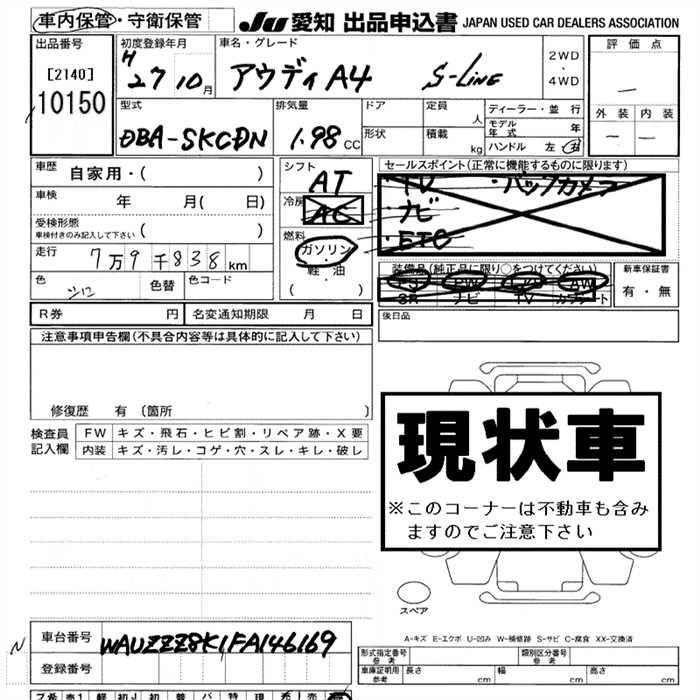 車内保管・守衛保管
JU 愛知 出品申込書 JAPAN USED CAR DEALERS ASSOCIATION
出品番号
[2140]
10150
初度登録年月
H 27 10月
車名・グレード
アウディA4 S-LINE
2WD
・
4WD
評価点
—
外装 内装
— —
型式
DBA-8KCDN
排気量
1.98 CC
ドア
形状
定員 人
積載 kg
ディーラー・並行
モデル年式 年
ハンドル 左・右
車歴 自家用・( )
車検 年 月( 日)
受検形態
車検付きのみ記入して下さい ( )
走行 7万9千838km
色 シロ 色替 色コード
シフト AT
冷房 AC
燃料
ガソリン
・
軽・油
( )
セールスポイント(正常に機能するものに限ります)
・TV ・バックカメラ
・ナビ
・ETC
装備品(純正品に限り○をつけてください)
PS PW AW
SR ナビ TV
新車保証書
有・無
R券 円 名変通知期限 月 日
後日品
注意事項申告欄(不具合内容等は具体的に記入して下さい)
修復歴 有 (箇所 )
検査員記入欄
FW キズ・飛石・ヒビ割・リペア跡・X要
内装 キズ・汚レ・コゲ・穴・スレ・キレ・破レ
現状車
※このコーナーは不動車も含み
ますのでご注意下さい
スペア
A-キズ E-エクボ U-凹み W-補修跡 S-サビ C-腐食 XX-交換済
N
車台番号 WAUZZZ8K1FA146169
登録番号
形式指定番号 参考
類別区分番号 参考
車庫証明用 参考 長さ cm 幅 cm 高さ cm